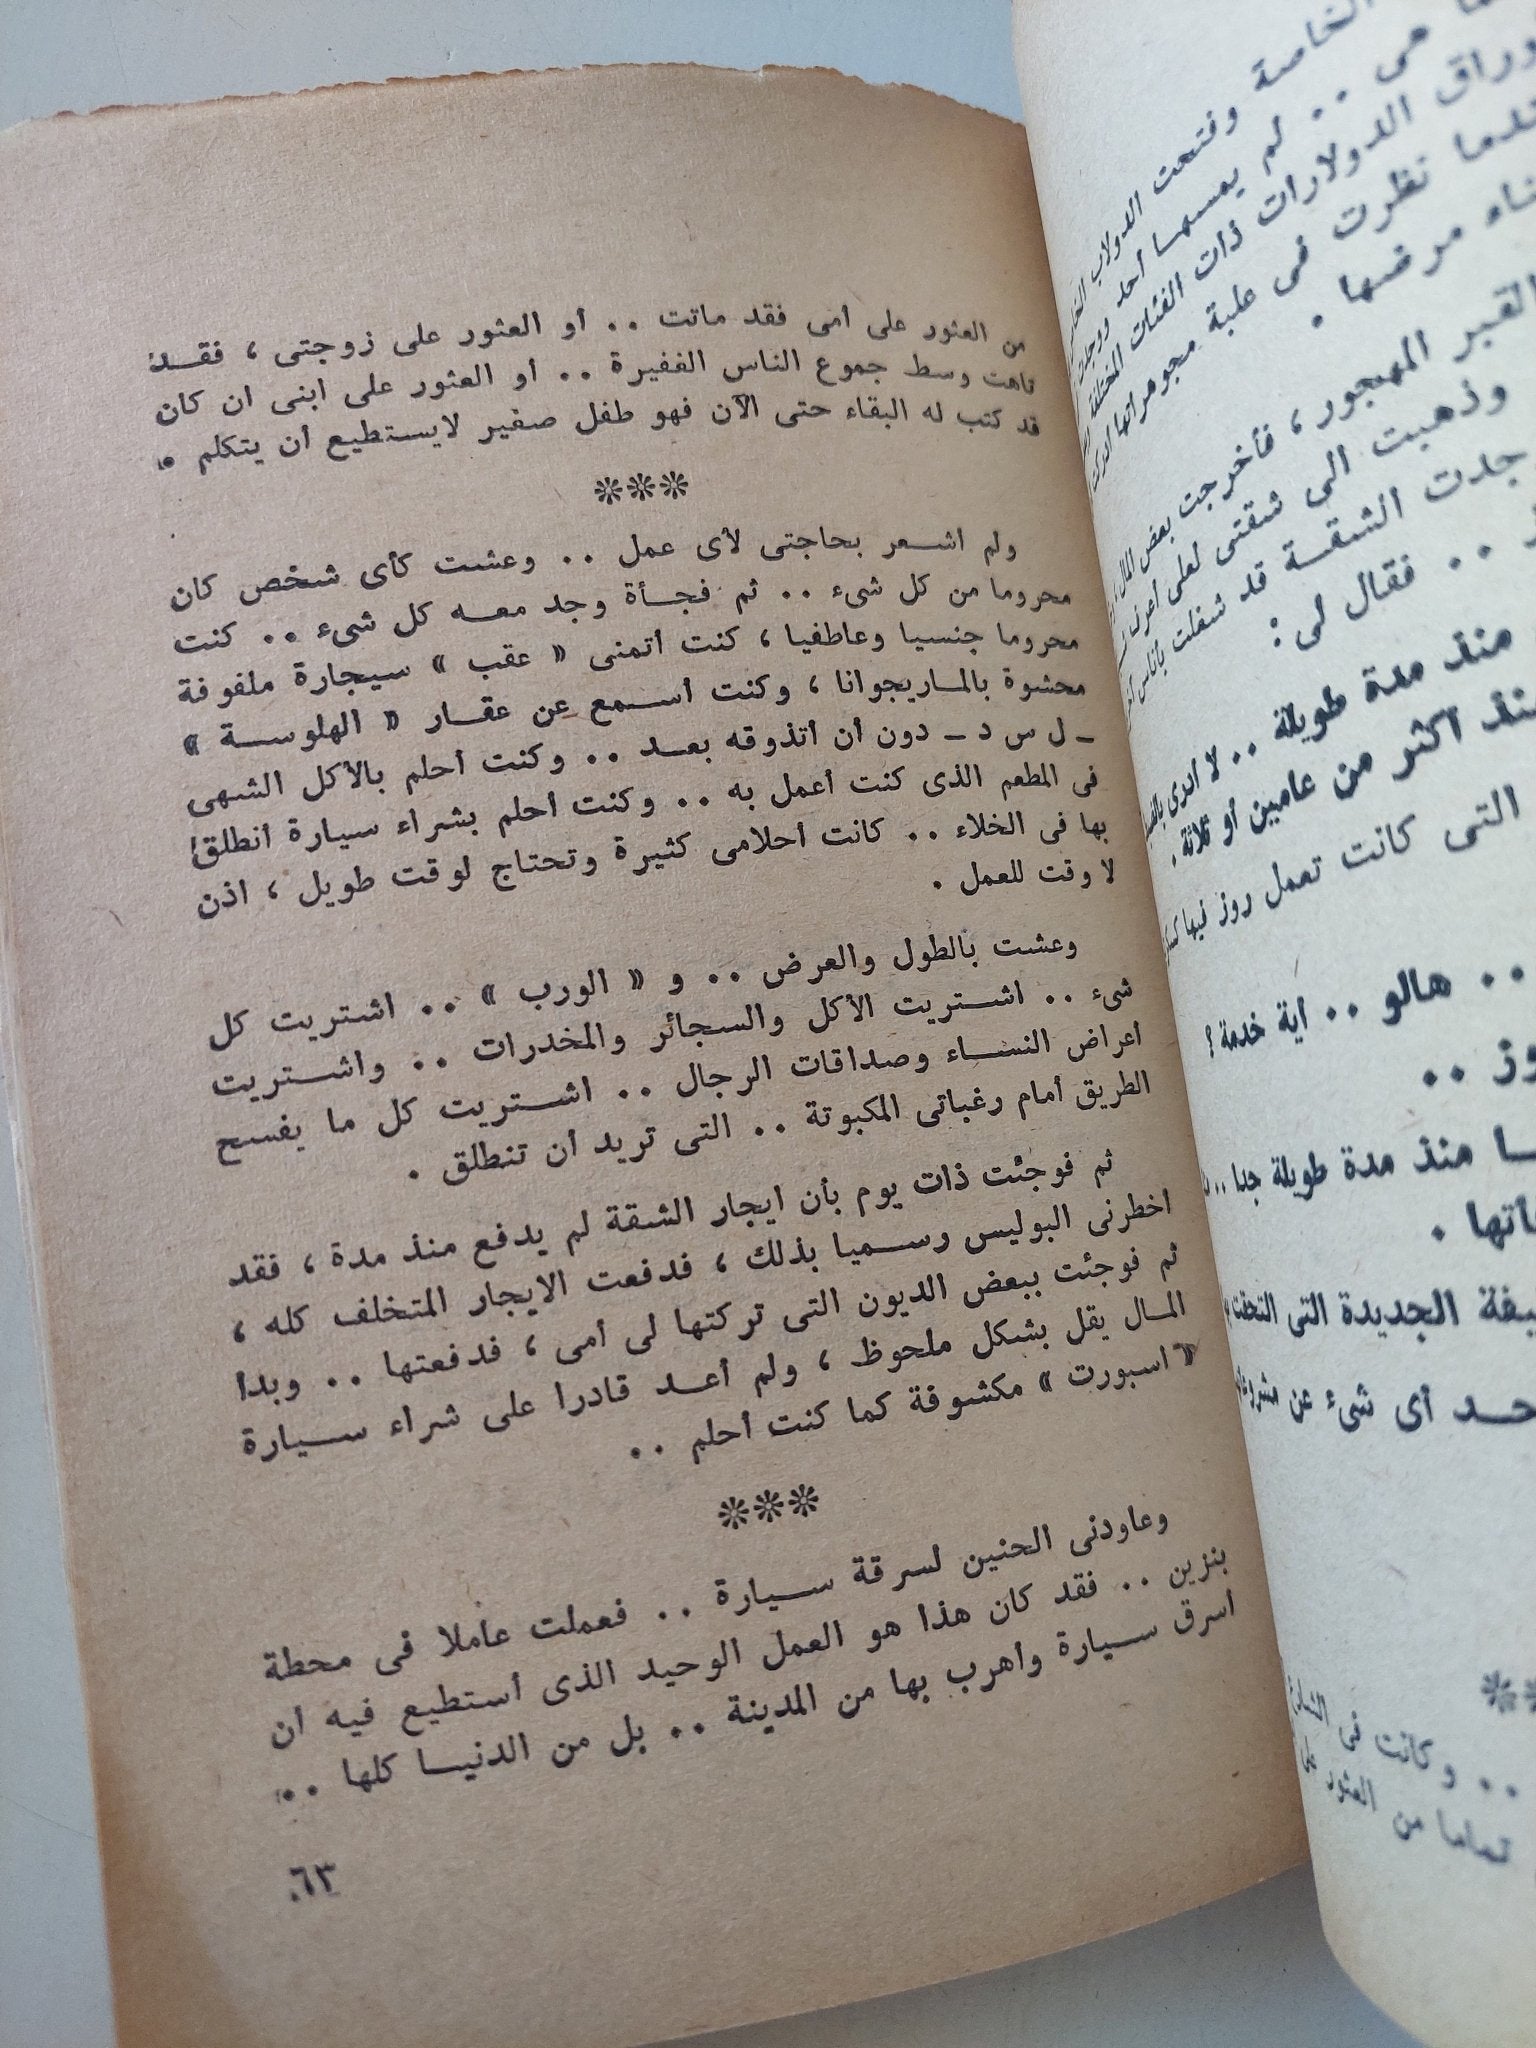 الخاصة وفتحت الدولاب
هى . . لم يمسها أحد ووجدت
أوراق الدولارات ذات الفئات المختلفة
نظرت فى علبة مجوهراتها
مرضها .
القبر المهجور ، فأخرجت بعض المال
وذهبت الى شقتى لعلى أعرف
جدت الشقة قد شغلت بأناس
. . فقال لى :
منذ مدة طويلة . . لا أدرى
منذ أكثر من عامين أو ثلاثة .
التى كانت تعمل روز فيها
. . هالو . . أية خدمة ؟
روز . .
منذ مدة طويلة جدا . .
الجديدة التى التحقت
أى شىء عن
. . وكانت فى
تماما من العثور على
من العثور على أمى فقد ماتت . . أو العثور على زوجتى ، فقد
تاهت وسط جموع الناس الغفيرة . . أو العثور على ابنى ان كان
قد كتب له البقاء حتى الآن فهو طفل صغير لايستطيع أن يتكلم .
***
ولم اشعر بحاجتى لأى عمل . . وعشت كأى شخص كان
محروما من كل شىء . . ثم فجأة وجد معه كل شىء . . كنت
محروما جنسيا وعاطفيا ، كنت أتمنى « عقب » سيجارة ملفوفة
محشوة بالماريجوانا ، وكنت أسمع عن عقار « الهلوسة »
ـ ل س د ـ دون أن أتذوقه بعد . . وكنت أحلم بالأكل الشهى
فى المطعم الذى كنت أعمل به . . وكنت أحلم بشراء سيارة أنطلق
بها فى الخلاء . . كانت أحلامى كثيرة وتحتاج لوقت طويل ، اذن
لا وقت للعمل .
وعشت بالطول والعرض . . و « الورب » . . اشتريت كل
شىء . . اشتريت الأكل والسجائر والمخدرات . . واشتريت
اعراض النساء وصداقات الرجال . . اشتريت كل ما يفسح
الطريق أمام رغباتى المكبوتة . . التى تريد أن تنطلق .
ثم فوجئت ذات يوم بأن ايجار الشقة لم يدفع منذ مدة ، فقد
اخطرنى البوليس رسميا بذلك ، فدفعت الايجار المتخلف كله ،
ثم فوجئت ببعض الديون التى تركتها لى أمى ، فدفعتها . . وبدا
المال يقل بشكل ملحوظ ، ولم أعد قادرا على شراء سيارة
« اسبورت » مكشوفة كما كنت أحلم . .
***
وعاودنى الحنين لسرقة سيارة . . فعملت عاملا فى محطة
بنزين . . فقد كان هذا هو العمل الوحيد الذى أستطيع فيه ان
اسرق سيارة وأهرب بها من المدينة . . بل من الدنيا كلها . .
٦٣